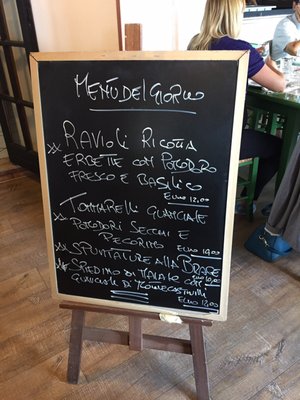 Menù del Giorno
Ravioli Ricotta
Erbette con Pomodoro
Fresco e Basilico
Euro 12,00
Tonnarelli Guanciale
Pomodori Secchi e
Pecorino Euro 10,00
Spuntature alla Brace
Euro 10,00
Spiedino di Maiale con
di
Euro 12,00